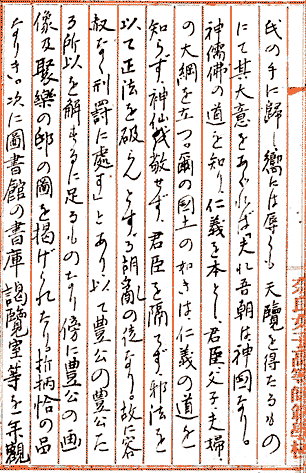 氏の手に歸し、嚮には辱くも天覽を得たるもの
にて其大意をあぐれば「夫れ吾朝は神國なり。
神儒佛の道を知り、仁義を本とし、君臣父子夫婦
の大綱を立つ。爾の國土の如きは、仁義の道を
知らず、神仙を敬せず、君臣を隔てず、邪法を
以て正法を破らんとする胡亂の徒なり。故に容
赦なく刑罰に處す」とあり、以て豐公の豐公た
る所以を解するに足るものなり。傍に豐公の画
像及聚樂の邸の圖を掲げられたり。折柄恰の品
なりき。次に圖書館の書庫 閲覽室等を参觀